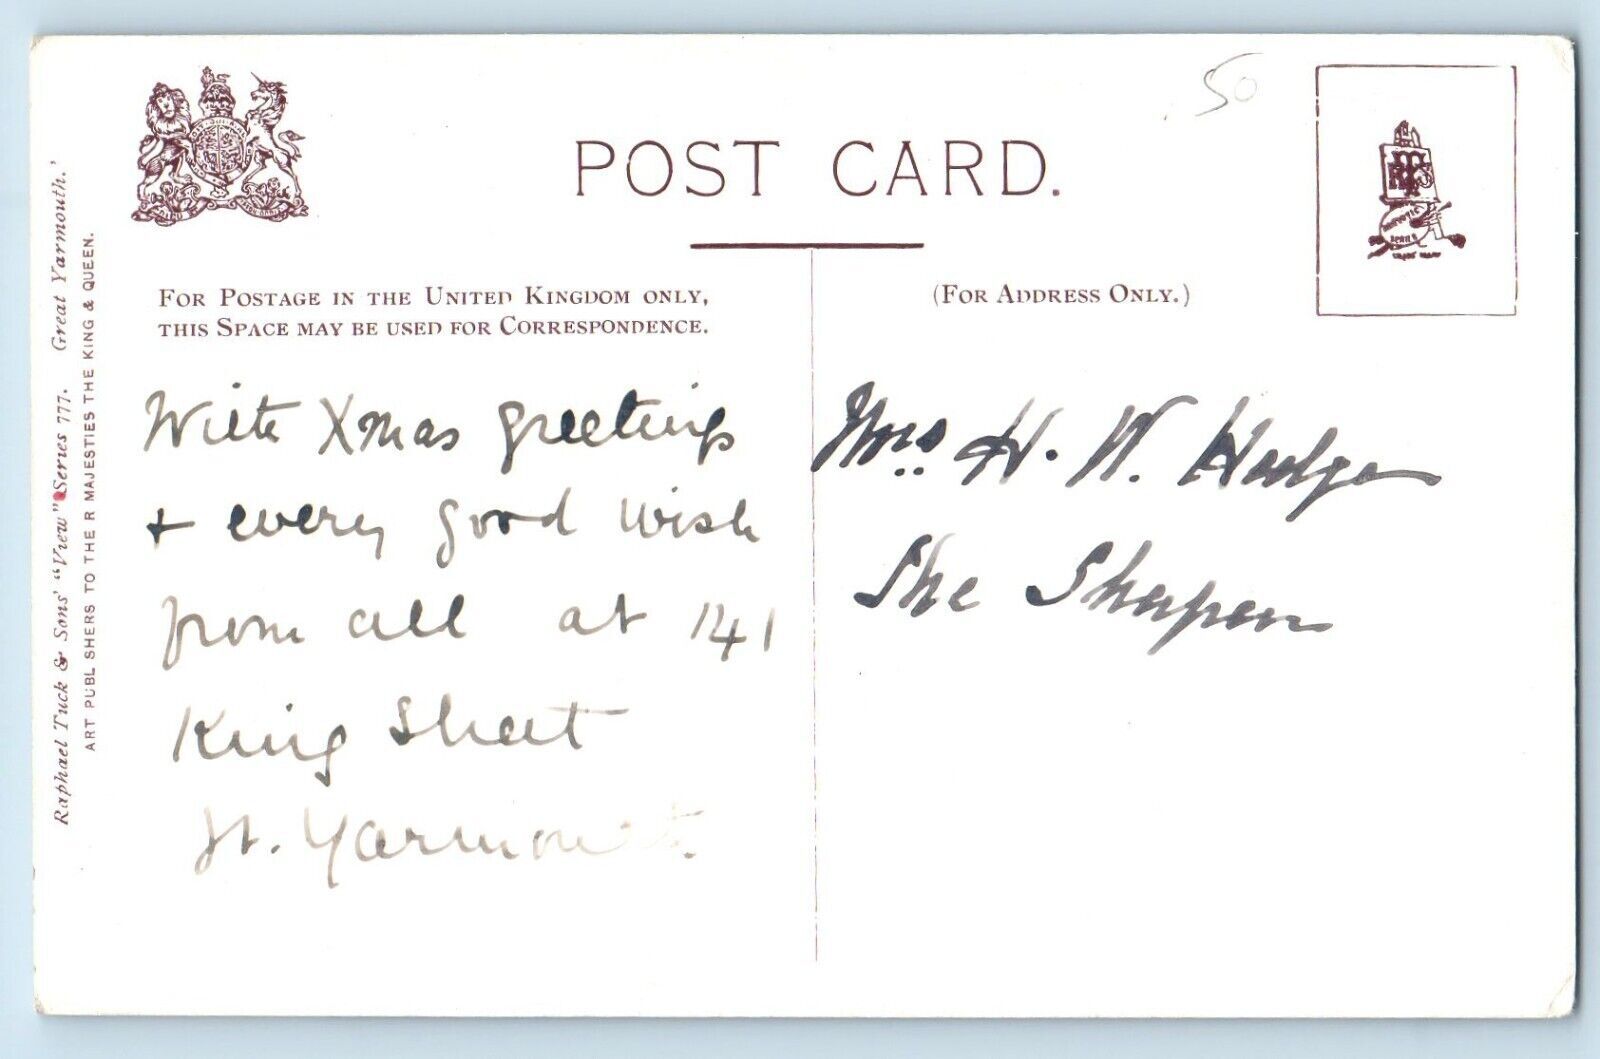 50
POST CARD.
FOR POSTAGE IN THE UNITED KINGDOM ONLY,
THIS SPACE MAY BE USED FOR CORRESPONDENCE.
(FOR ADDRESS ONLY.)
With Xmas greetings
+ every good wish
from all at 141
King Street
Gt. Yarmouth.
Mrs H. W. Hodge
The
Raphael Tuck & Sons' "View" Series 777. Great Yarmouth.'
ART PUBL SHERS TO THE R MAJESTIES THE KING & QUEEN.